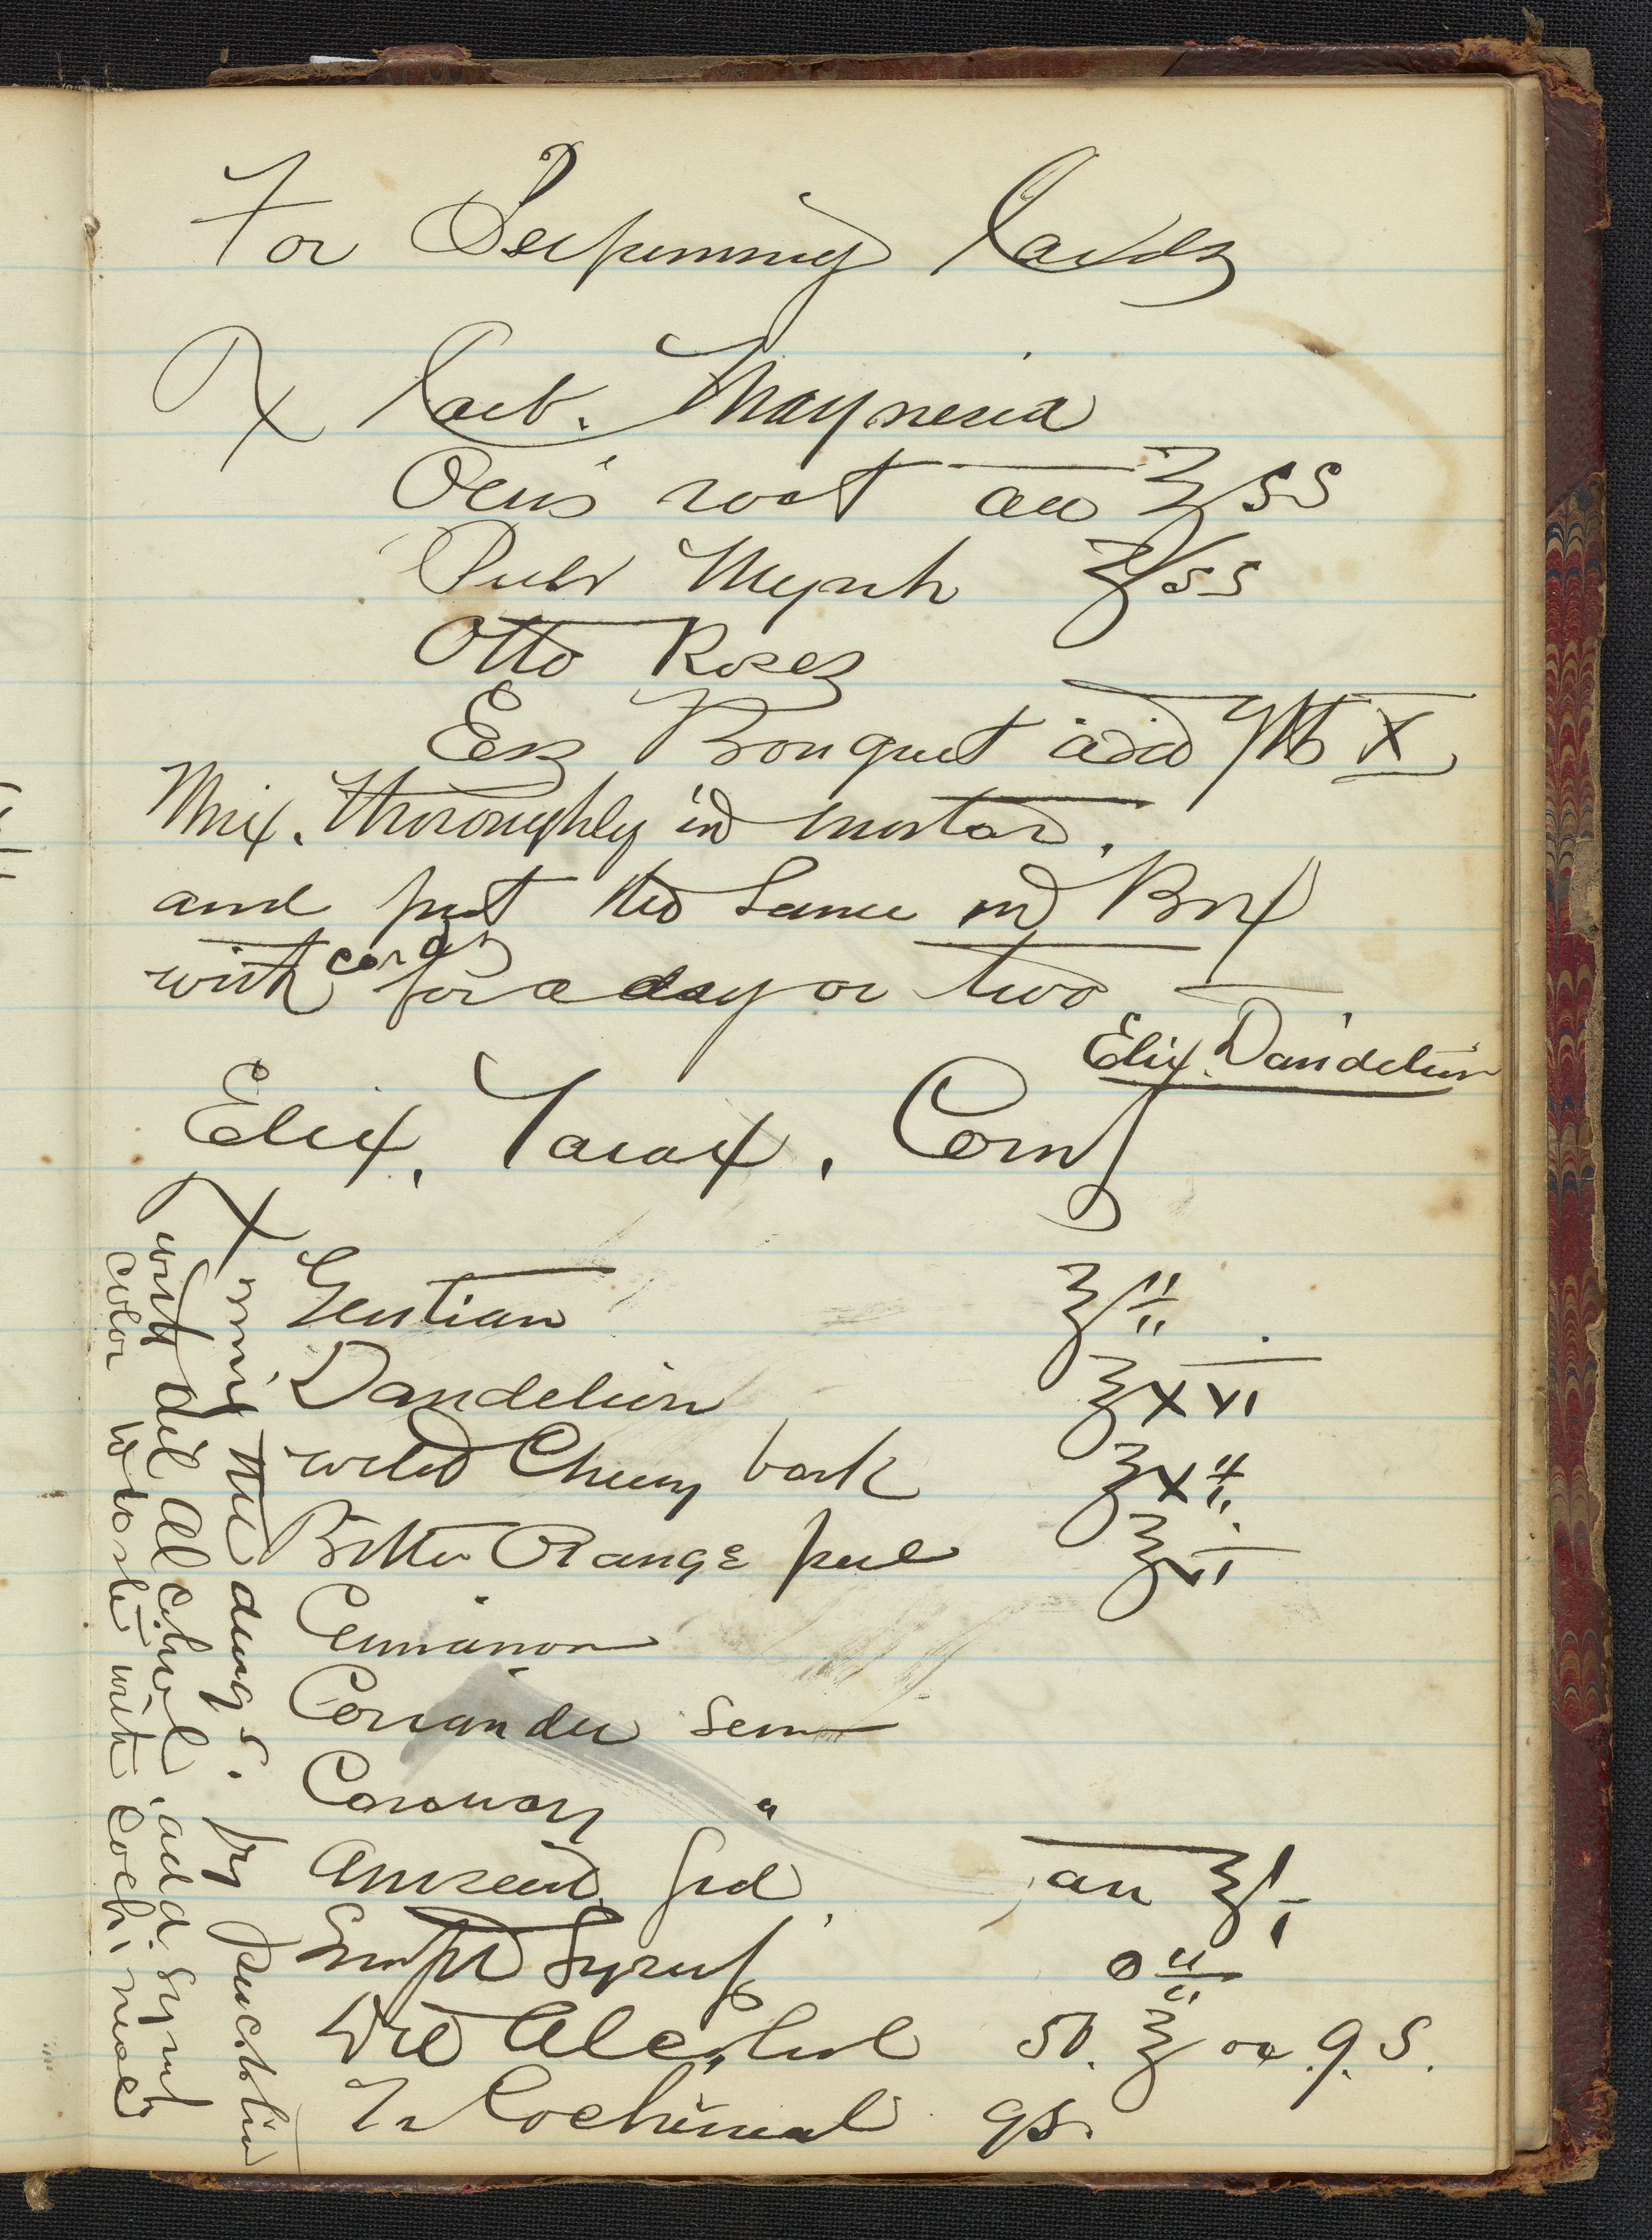 For Perfuming Cards
℞ Carb. Magnesia
Orris root aa ℥ss
Pulv Myrrh ℥ss
Otto Roses
Ess Bouquet aa ♏ X
Mix. thoroughly in mortar,
and put the same in Box
with cards for a day or two
Elix. Dandelion
Elix. Tarax. Comp
℞
Gentian ℥ii
Dandelion ℥xvi
wild Cherry bark ℥xii
Bitter Orange peel ℥vi
Cinnamon
Coriander sem
Caraway "
Aniseed grd aa ℥i
Simple Syrup O ii
Dil Alcohol 50. ℥ or q.s.
Tr Cochineal qs.
mix the drugs. fry Percolation
with dil Alcohol. add. Syrup
color to taste with Cochineal